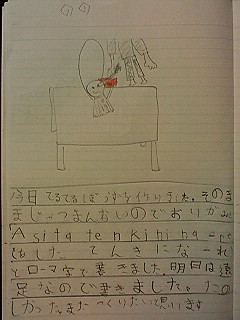 今日てるてるぼうずを作りました。そのま
まじゃつまんないのでおりがみ
Asita tenkinina-re
にした てんきになーれ
とローマ字で書きました。明日は遠
足なので書きました。たの
しかったまたつくりたいと思います